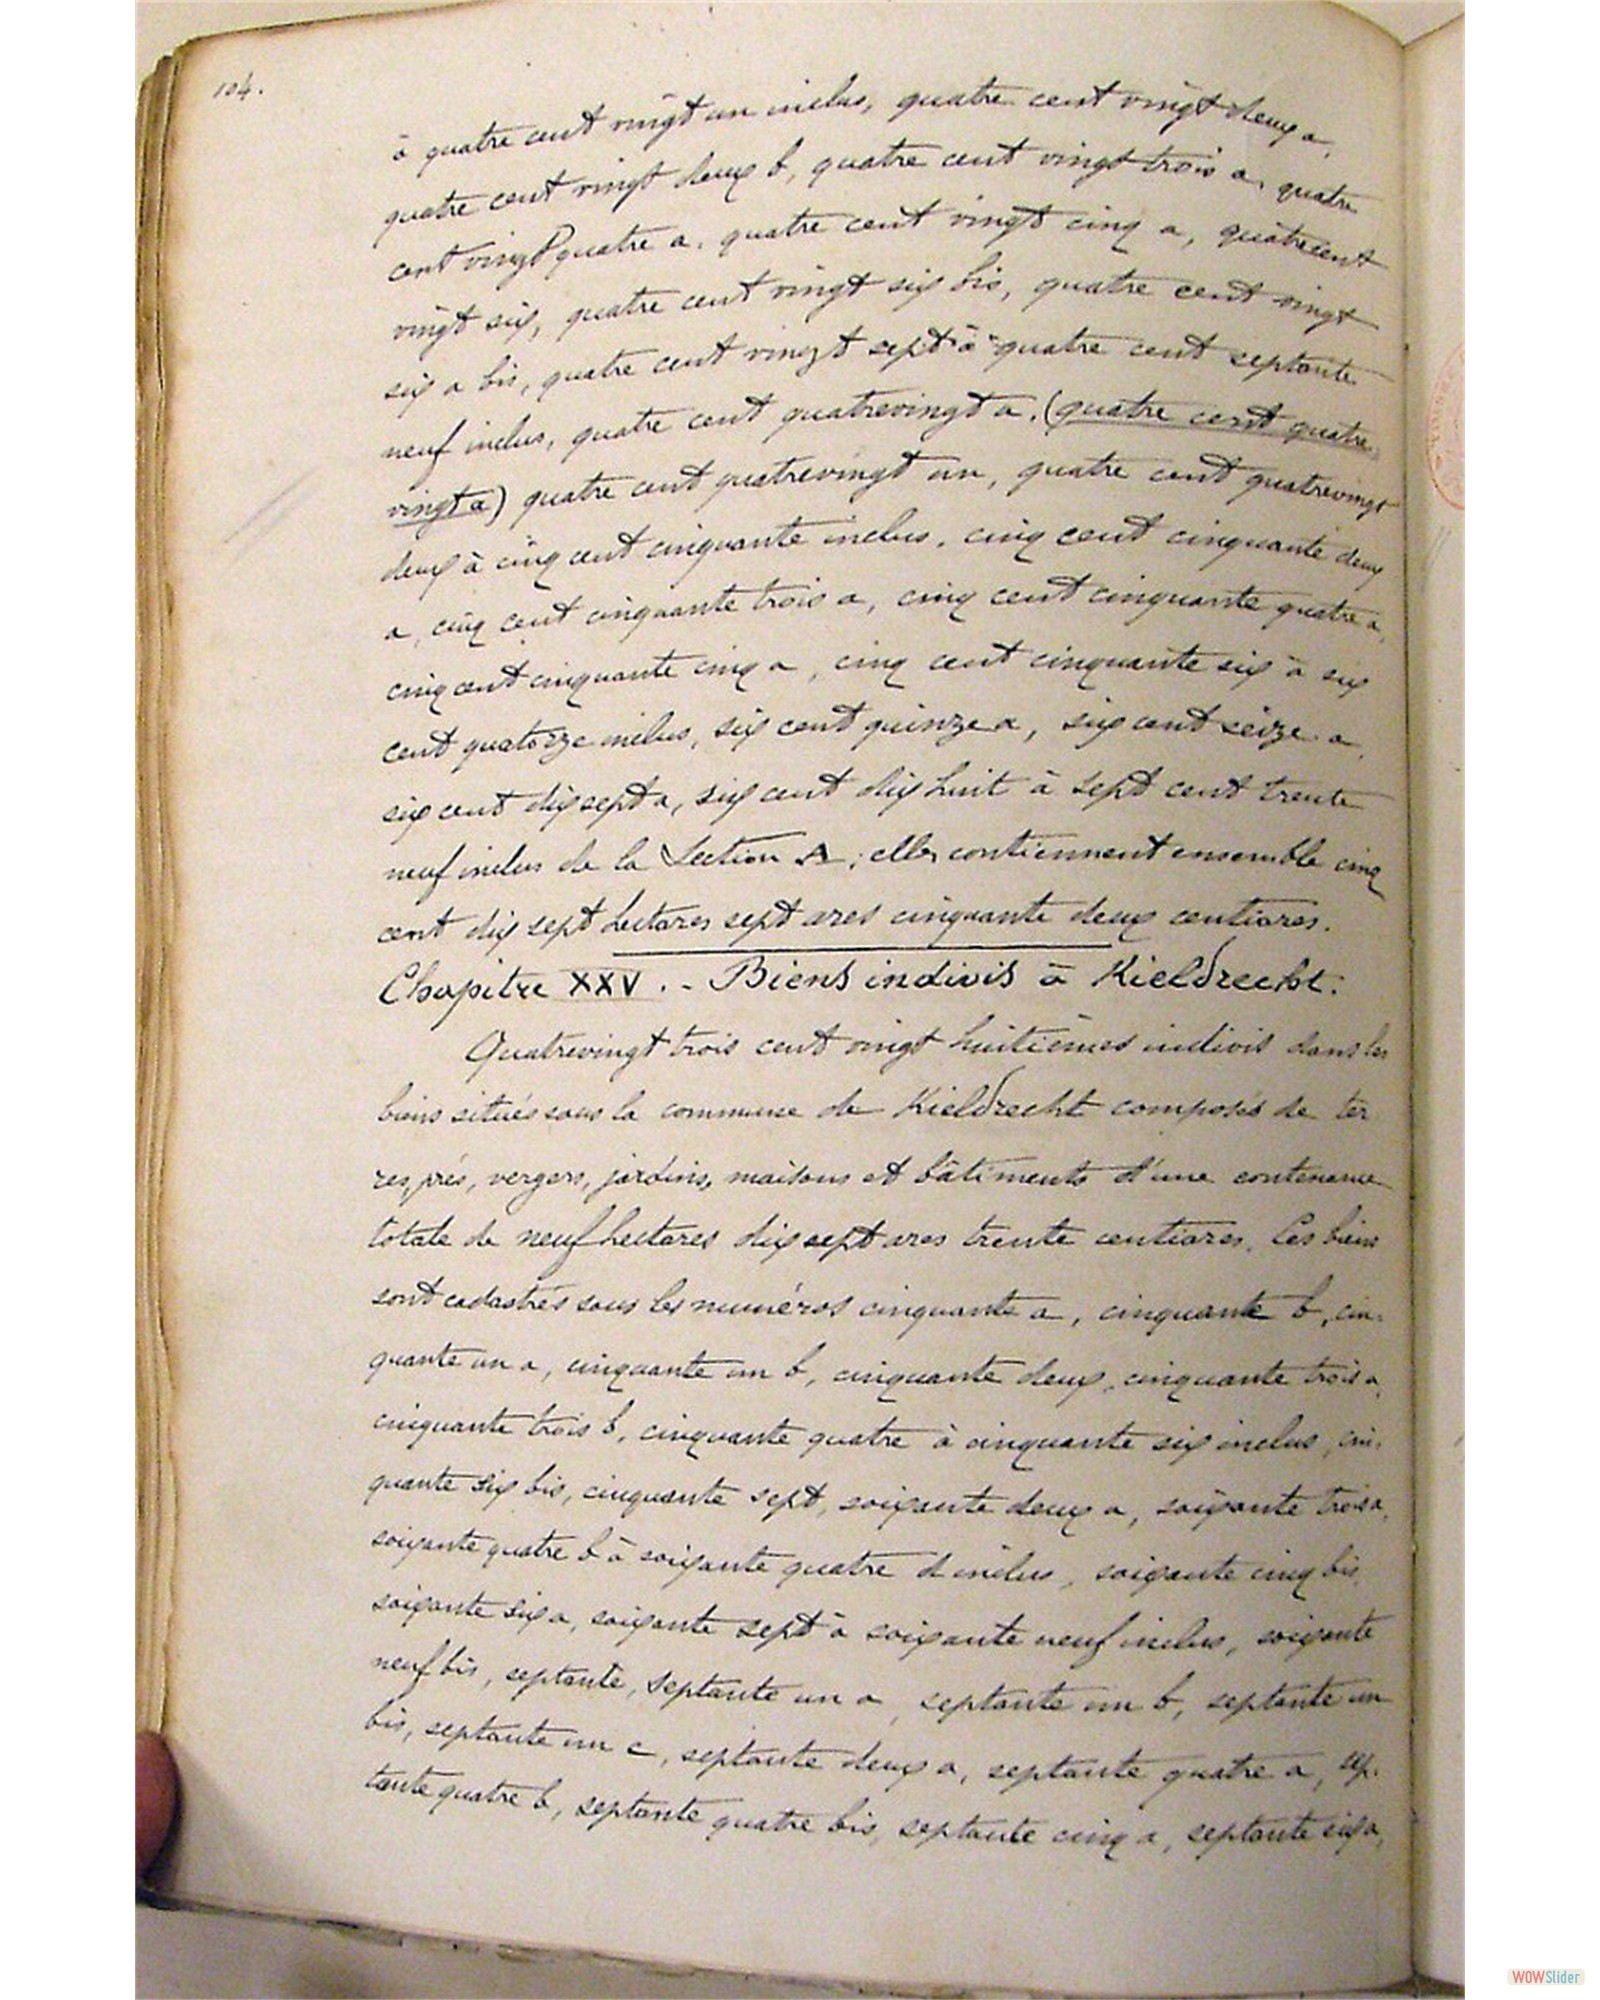 104.
à quatre cent vingt un inclus, quatre cent vingt deux a,
quatre cent vingt deux b, quatre cent vingt trois a, quatre
cent vingt quatre a, quatre cent vingt cinq a, quatre cent
vingt six, quatre cent vingt six bis, quatre cent vingt
six a bis, quatre cent vingt sept à quatre cent septante
neuf inclus, quatre cent quatrevingt a, (quatre cent quatre
vingt a) quatre cent quatrevingt un, quatre cent quatrevingt
deux à cinq cent cinquante inclus, cinq cent cinquante deux
a, cinq cent cinquante trois a, cinq cent cinquante quatre a,
cinq cent cinquante cinq a, cinq cent cinquante six à six
cent quatorze inclus, six cent quinze a, six cent seize a,
six cent dix sept a, six cent dix huit à sept cent trente
neuf inclus de la Section A; elles contiennent ensemble cinq
cent dix sept hectares sept ares cinquante deux centiares.
Chapitre XXV. - Biens indivis à Kieldrecht.
Quatrevingt trois cent vingt huitièmes indivis dans les
biens situés sous la commune de Kieldrecht composés de ter
res, prés, vergers, jardins, maisons et bâtiments d'une contenance
totale de neuf hectares dix sept ares trente centiares. Ces biens
sont cadastrés sous les numéros cinquante a, cinquante b, cin-
quante un a, cinquante un b, cinquante deux, cinquante trois a,
cinquante trois b, cinquante quatre à cinquante six inclus, cin-
quante six bis, cinquante sept, soixante deux a, soixante trois a,
soixante quatre b à soixante quatre d inclus, soixante cinq bis,
soixante six a, soixante sept à soixante neuf inclus, soixante
neuf bis, septante, septante un a, septante un b, septante un
bis, septante un c, septante deux a, septante quatre a, sep-
tante quatre b, septante quatre bis, septante cinq a, septante six a,
WOWSlider